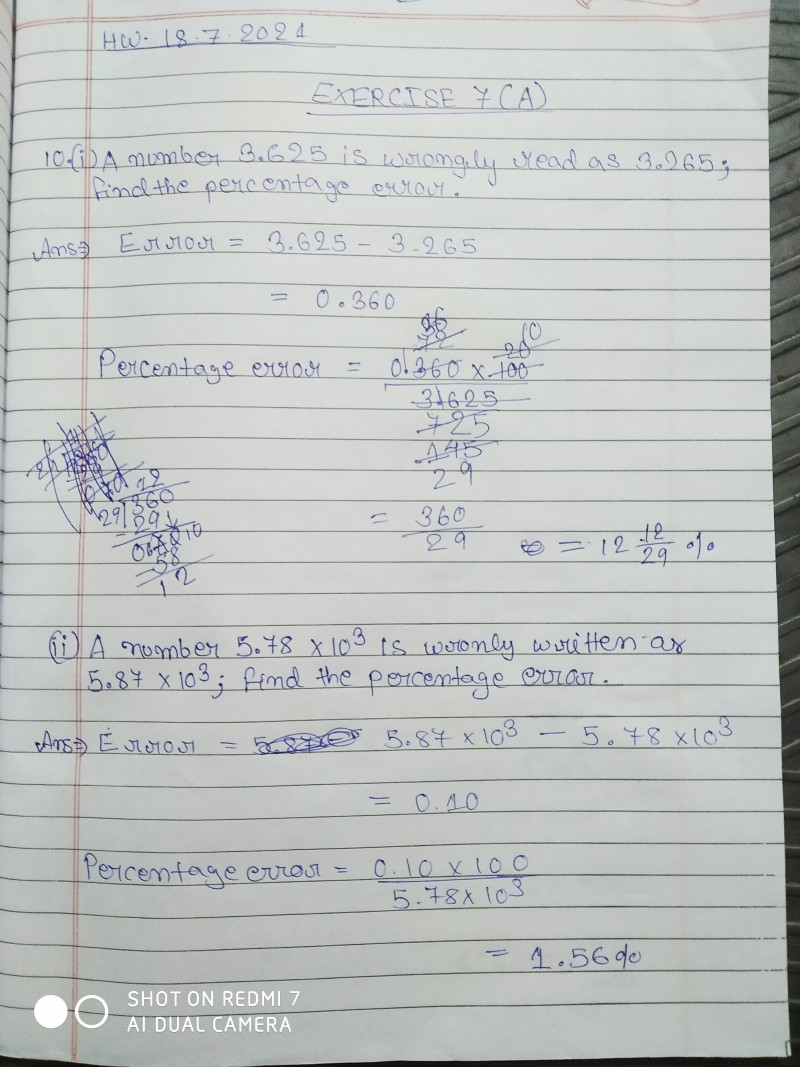 HW. 18.7.2021
EXERCISE 7(A)
10.(i) A number 3.625 is wrongly read as 3.265;
find the percentage error.
Ans⇒ Error = 3.625 - 3.265
= 0.360
36
72
10
20
Percentage error = 0.360 x 100
3.625
725
145
29
12
29)360
- 29↓
0670 10
58
12
= 360
29
= 12 12/29 %
(ii) A number 5.78 x 10³ is wronly written as
5.87 x 10³; find the percentage error.
Ans⇒ Error = 5.87 x 10³ - 5.78 x 10³
= 0.10
Percentage error = 0.10 x 100
5.78 x 10³
= 1.56%
SHOT ON REDMI 7
AI DUAL CAMERA